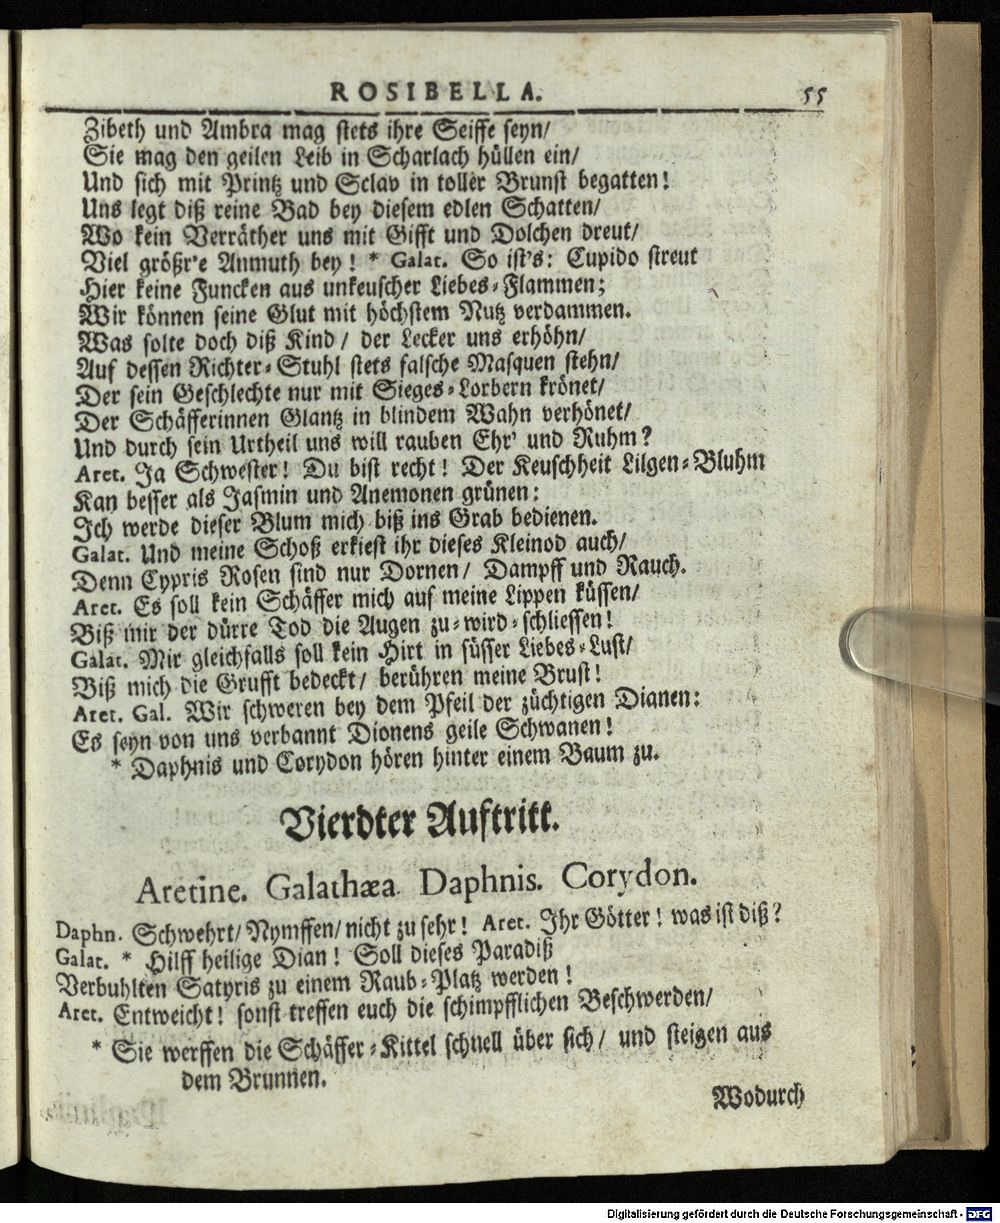 ROSIBELLA. 55
Zibeth und Ambra mag stets ihre Seiffe seyn/
Sie mag den geilen Leib in Scharlach hüllen ein/
Und sich mit Printz und Sclav in toller Brunst begatten!
Uns legt diß reine Bad bey diesem edlen Schatten/
Wo kein Verräther uns mit Gifft und Dolchen dreut/
Viel größr'e Anmuth bey! * Galat. So ist's: Cupido streut
Hier keine Funcken aus unkeuscher Liebes-Flammen;
Wir können seine Glut mit höchstem Nutz verdammen.
Was solte doch diß Kind/ der Lecker uns erhöhn/
Auf dessen Richter-Stuhl stets falsche Masquen stehn/
Der sein Geschlechte nur mit Sieges-Lorbern krönet/
Der Schäfferinnen Glantz in blindem Wahn verhönet/
Und durch sein Urtheil uns will rauben Ehr' und Ruhm?
Aret. Ja Schwester! Du bist recht! Der Keuschheit Lilgen-Bluhm
Kan besser als Jasmin und Anemonen grünen:
Ich werde dieser Blum mich biß ins Grab bedienen.
Galat. Und meine Schoß erkiest ihr dieses Kleinod auch/
Denn Cypris Rosen sind nur Dornen/ Dampff und Rauch.
Aret. Es soll kein Schäffer mich auf meine Lippen küssen/
Biß mir der dürre Tod die Augen zu-wird-schliessen!
Galat. Mir gleichfalls soll kein Hirt in süsser Liebes-Lust/
Biß mich die Grufft bedeckt/ berühren meine Brust!
Aret. Gal. Wir schweren bey dem Pfeil der züchtigen Dianen:
Es seyn von uns verbannt Dionens geile Schwanen!
* Daphnis und Corydon hören hinter einem Baum zu.
Vierdter Auftritt.
Aretine. Galathæa. Daphnis. Corydon.
Daphn. Schwehrt/ Nymffen/ nicht zu sehr! Aret. Ihr Götter! was ist diß?
Galat. * Hilff heilige Dian! Soll dieses Paradiß
Verbuhlten Satyris zu einem Raub-Platz werden!
Aret. Entweicht! sonst treffen euch die schimpfflichen Beschwerden/
* Sie werffen die Schäffer-Kittel schnell über sich/ und steigen aus
dem Brunnen.
Wodurch
Digitalisierung gefördert durch die Deutsche Forschungsgemeinschaft - DFG